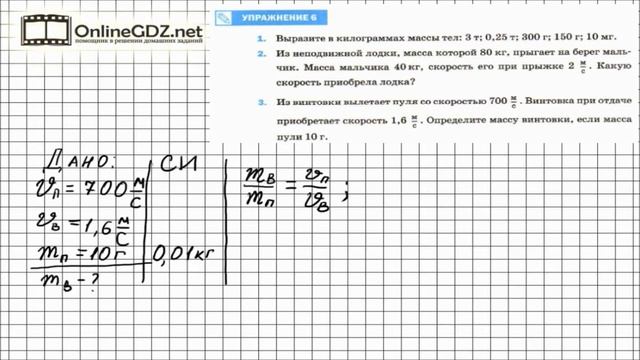 OnlineGDZ.net
помощник в решении домашних заданий
УПРАЖНЕНИЕ 6
1. Выразите в килограммах массы тел: 3 т; 0,25 т; 300 г; 150 г; 10 мг.
2. Из неподвижной лодки, масса которой 80 кг, прыгает на берег маль-
чик. Масса мальчика 40 кг, скорость его при прыжке 2 м/с. Какую
скорость приобрела лодка?
3. Из винтовки вылетает пуля со скоростью 700 м/с. Винтовка при отдаче
приобретает скорость 1,6 м/с. Определите массу винтовки, если масса
пули 10 г.
Дано:
v_п = 700 м/с
v_в = 1,6 м/с
m_п = 10 г
m_в - ?
СИ
0,01 кг
m_в/m_п = v_п/v_в ;